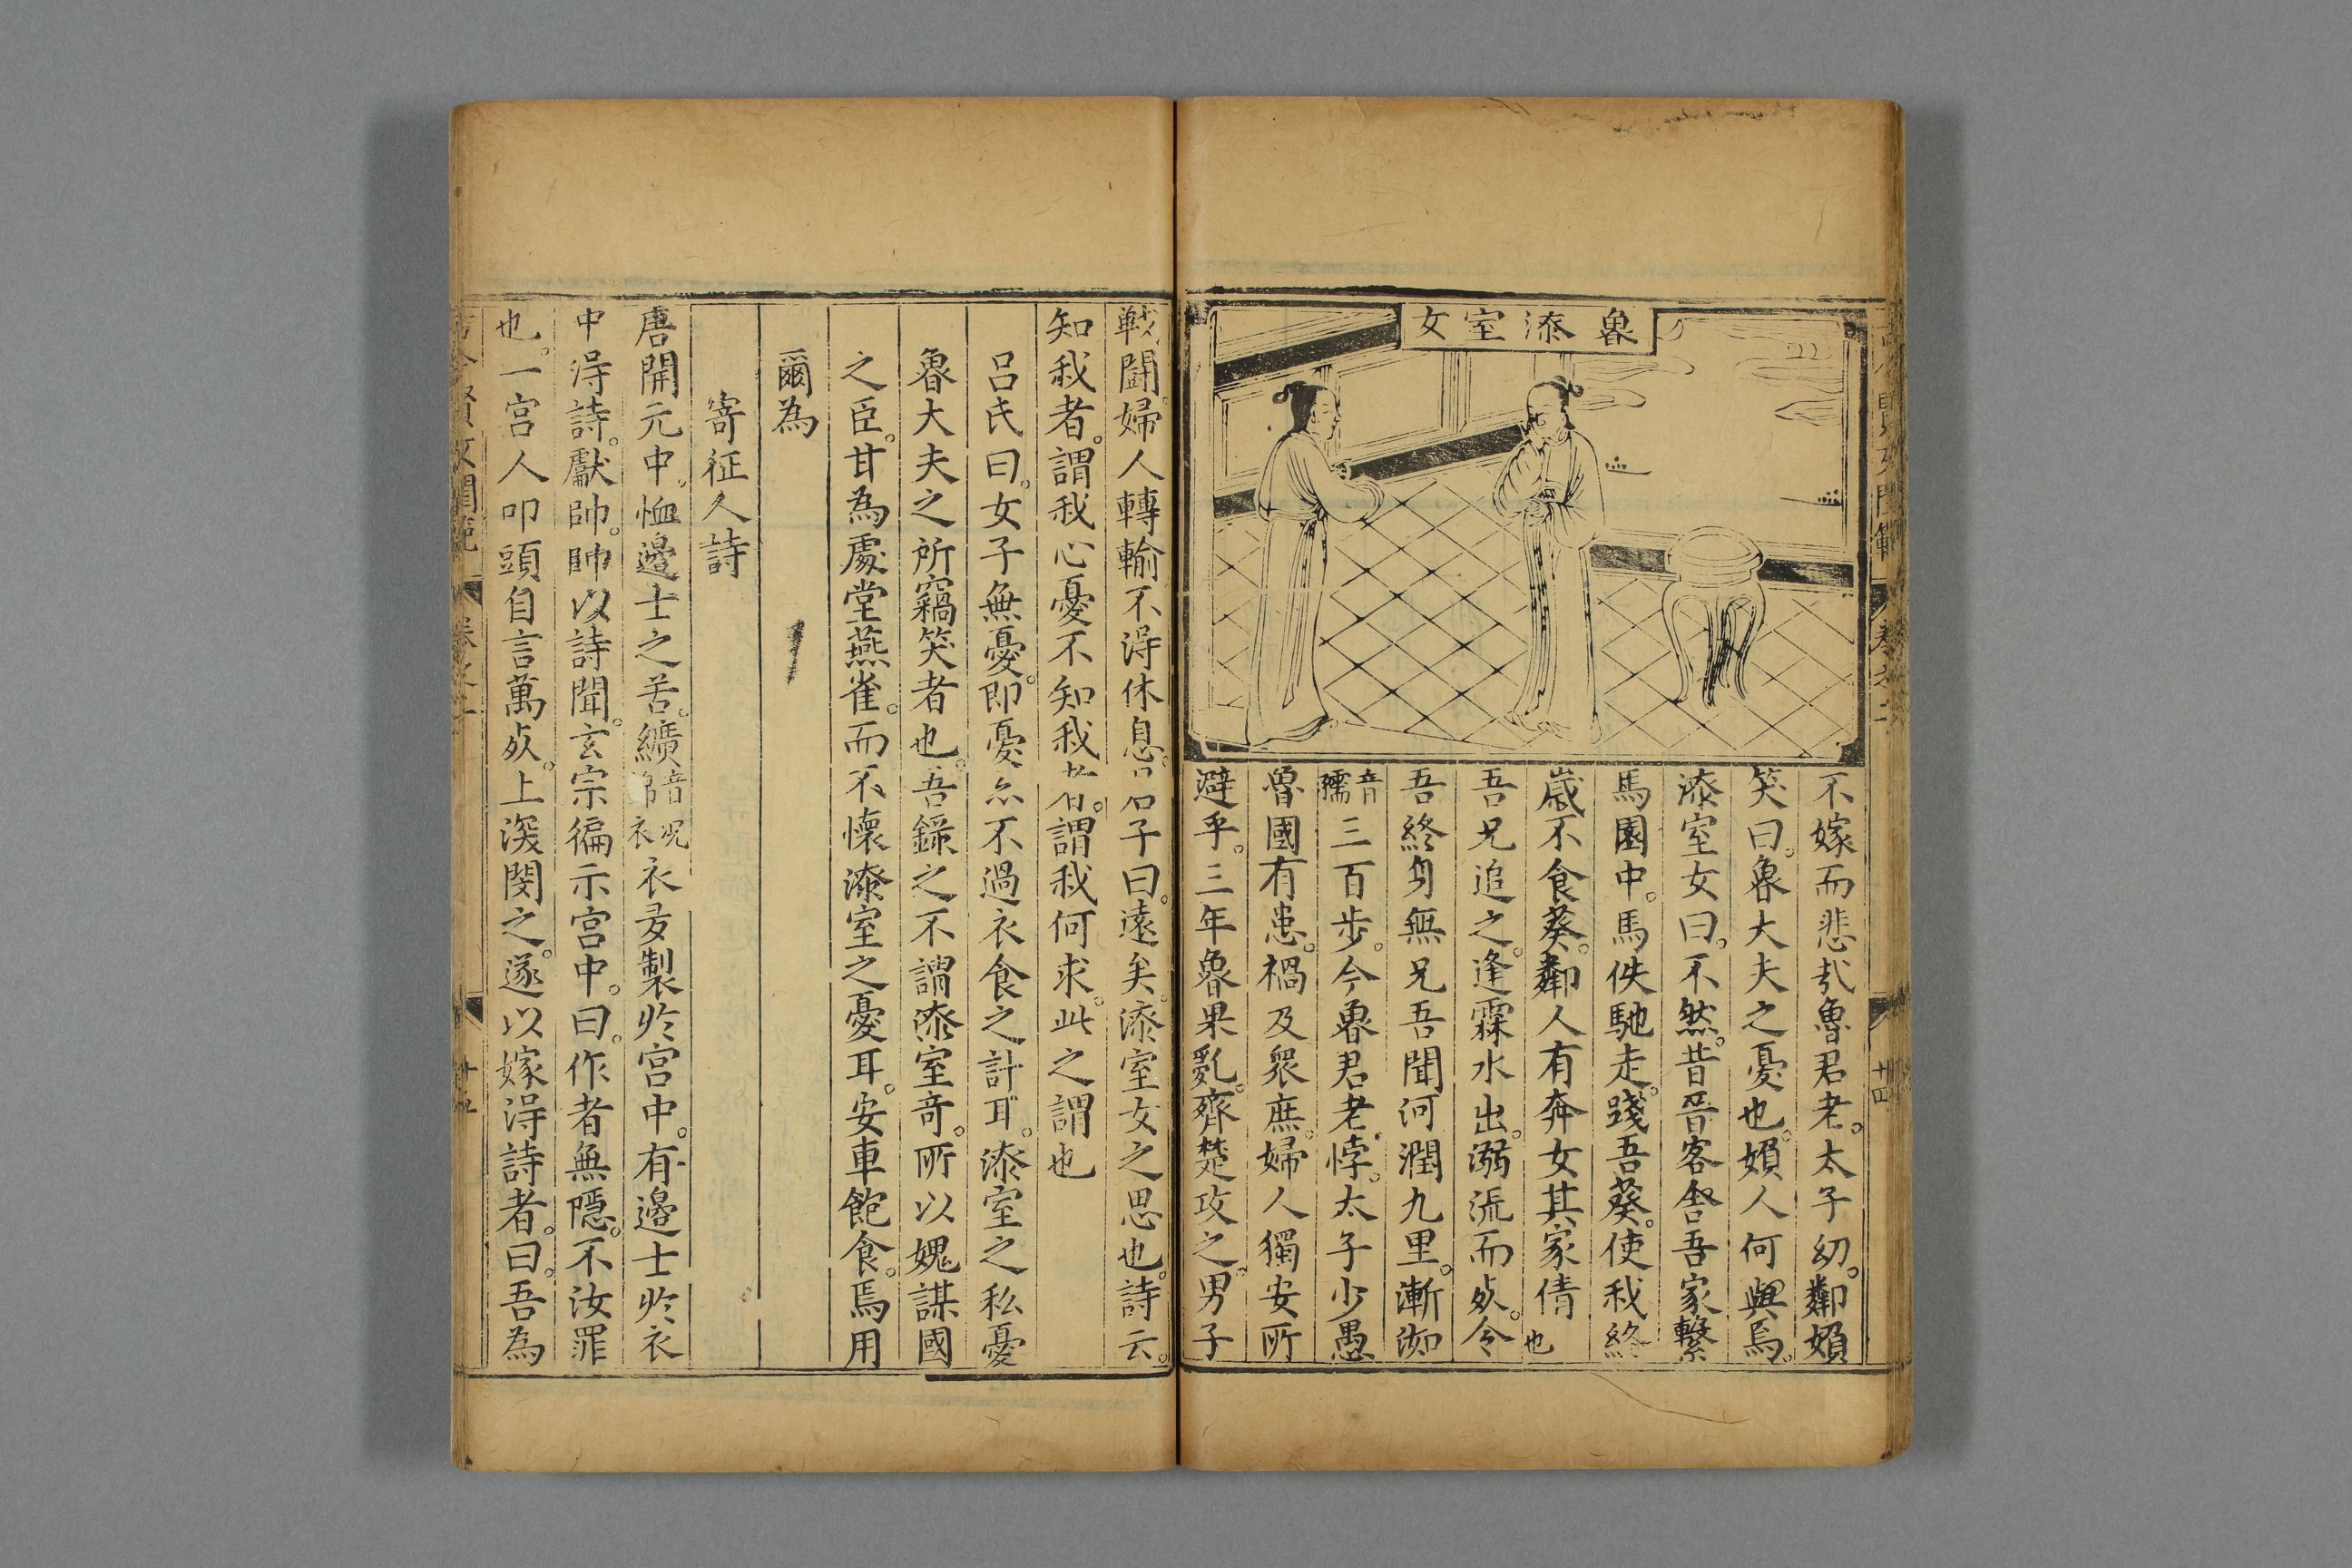 魯漆室女
不嫁而悲哉魯君老。太子幼。鄰婦
笑曰。魯大夫之憂也。婦人何與焉。
漆室女曰。不然。昔晉客舍吾家繫
馬園中。馬佚馳走。踐吾葵。使我終
歲不食葵。鄰人有奔女其家倩也
吾兄追之。逢霖水出。溺流而死。令
吾終身無兄吾聞河潤九里。漸洳
音獳三百步。今魯君老悖。太子少愚
魯國有患。禍及眾庶。婦人獨安所
避乎。三年魯果亂。齊楚攻之。男子
戰鬪。婦人轉輸不得休息。君子曰。遠矣漆室女之思也。詩云。
知我者。謂我心憂不知我者。謂我何求。此之謂也
呂氏曰。女子無憂。即憂亦不過衣食之計耳。漆室之私憂
魯大夫之所竊笑者也。吾錄之不謂漆室奇。所以媿謀國
之臣。甘為處堂燕雀。而不懷漆室之憂耳。安車飽食。焉用
爾為
寄征人詩
唐開元中。恤邊士之苦。纊音況綿衣衣多製於宮中。有邊士於衣
中得詩。獻帥。帥以詩聞。玄宗徧示宮中。曰。作者無隱。不汝罪
也。一宮人叩頭自言萬死。上深閔之。遂以嫁得詩者。曰。吾為
古今賢女閨範 卷之二